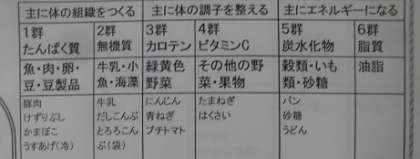 主に体の組織をつくる 主に体の調子を整える 主にエネルギーになる
1群 2群 3群 4群 5群 6群
たんぱく質 無機質 カロテン ビタミンC 炭水化物 脂質
魚・肉・卵・ 牛乳・小 緑黄色 その他の野 穀類・いも 油脂
豆・豆製品 魚・海藻 野菜 菜・果物 類・砂糖
豚肉 牛乳 にんじん たまねぎ パン
けずりぶし だしこんぶ 青ねぎ はくさい 砂糖
かまぼこ とろろこん プチトマト うどん
うすあげ(冷) ぶ(袋)